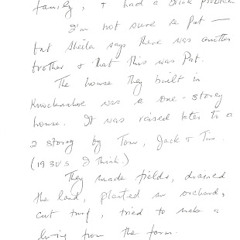 family, & had a drink problem
I'm not sure a Pat —
but Sheila says there was another
brother & that this was Pat.
The house they built in
was a one-storey
house. It was raised later to a
2 storey by Tom, Jack & Tim.
(1930's I think)
They made fields, drained
the land, planted an orchard,
cut turf, tried to make a
living from the farm.